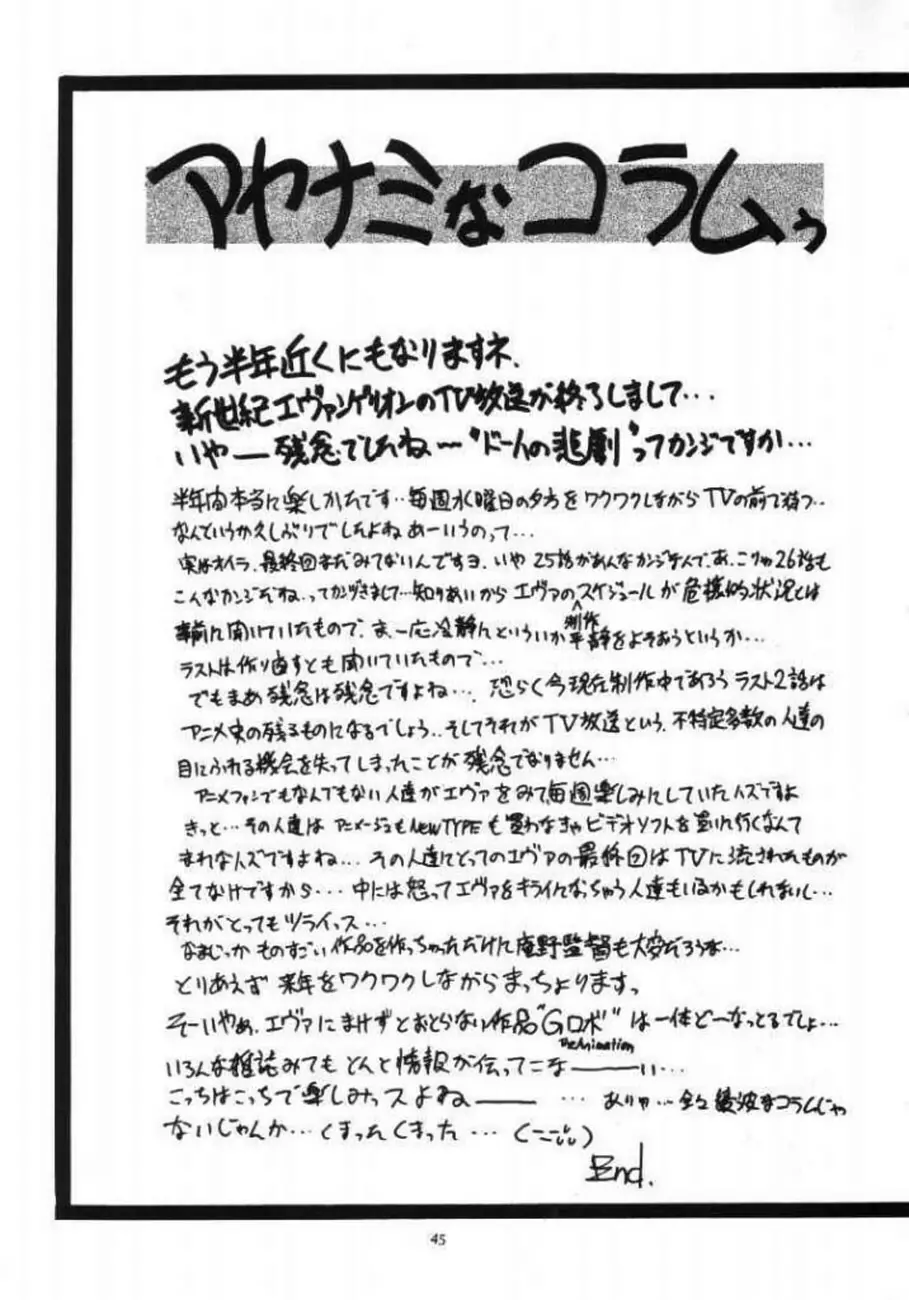 アヤナミなコラムぅ
もう半年近くにもなりますネ、
新世紀エヴァンゲリオンのTV放送が終了しまして…
いやー残念でしたね〜"ドー人の悲劇"ってカンジですか…
半年間本当に楽しかたです‥毎週水曜日の夕方をワクワクしながらTVの前で待つ‥
なんというか久しぶりでしたよねあーいうのって…
実はオイラ、最終回まだみてないんですヨ、いや25話があんなカンジなんで、あ、こりゃ26話も
こんなカンジだね、ってカンヅきまして…知りあいからエヴァの制作スケジュールが危機的状況とは
事前に聞いていたもので、ま、一応冷静んといういか平静をよそおうというか…
ラストは作り直すとも聞いていたもので…
でもまぁ残念は残念ですよね…、恐らく今現在制作中であろうラスト2話は
アニメ史の残るものになるでしょう‥そしてそれがTV放送という、不特定多数の人達の
目にふれる機会を失ってしまったことが残念でなりません…
アニメファンでもなんでもない人達がエヴァをみて、毎週楽しみにしていたハズですよ
きっと…その人達はアニメージュもNEWTYPEも買わなきゃビデオソフトを買いに行くなんて
まれなハズですよね…その人達にとってのエヴァの最終回はTVに流されたものが
全てなけですから…中には怒ってエヴァをキライになっちゃう人達もいるかもしれないし…
それがとってもツライっス…
なまじっかものすごい作品を作っちゃっただけに庵野監督も大変だろうな…
とりあえず来年をワクワクしながらまっちょります。
そーいやぁ、エヴァにまけずとおとらない作品"Gロボ"は一体どーなっとるでしょ…
The Animation
いろんな雑誌みてもとんと情報が伝ってこなーーい…
こっちはこっちで楽しみっスよねぇーー…ありゃ…全々綾波なコラムじゃ
ないじゃんか…くまったくまった…
End.
45